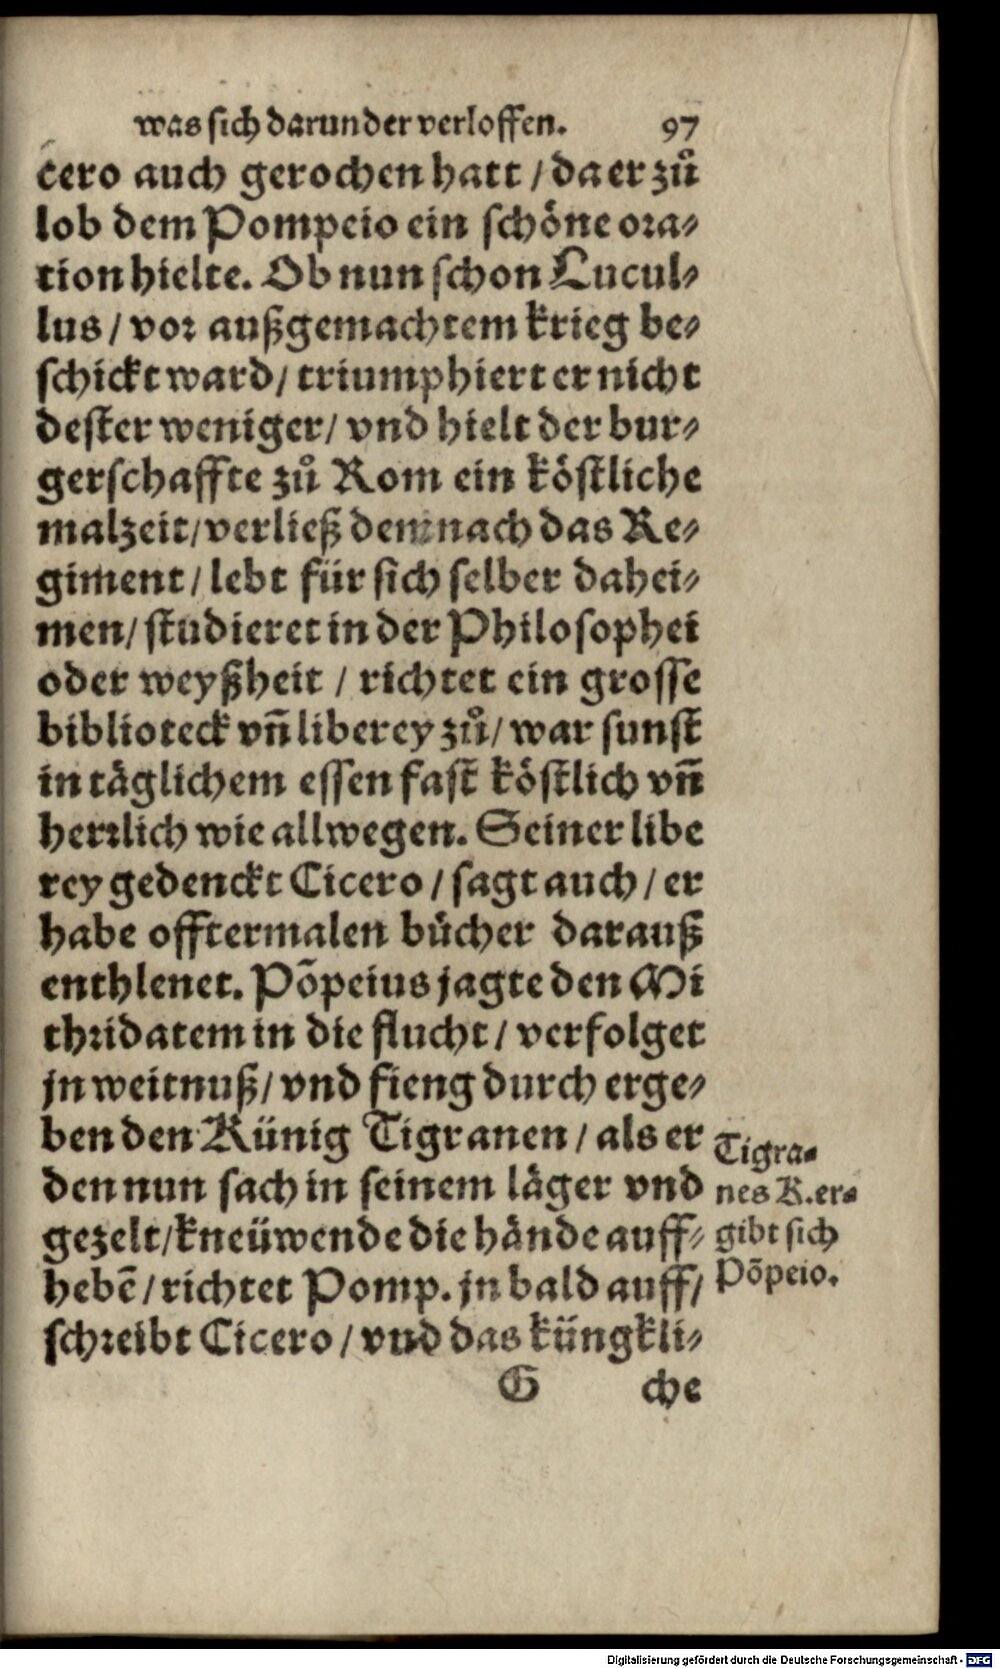 was sich darunder verloffen. 97
cero auch gerochen hatt / da er zů
lob dem Pompeio ein schöne ora⸗
tion hielte. Ob nun schon Lucul⸗
lus / vor außgemachtem krieg be⸗
schickt ward / triumphiert er nicht
dester weniger / vnd hielt der bur⸗
gerschaffte zů Rom ein köstliche
malzeit / verließ demnach das Re⸗
giment / lebt für sich selber dahei⸗
men / studieret in der Philosophei
oder weyßheit / richtet ein grosse
biblioteck vñ liberey zů / war sunst
in täglichem essen fast köstlich vñ
herrlich wie allwegen. Seiner libe
rey gedenckt Cicero / sagt auch / er
habe offtermalen bücher darauß
enthlenet. Põpeius jagte den Mi
thridatem in die flucht / verfolget
jn weitnuß / vnd fieng durch erge⸗
ben den Künig Tigranen / als er
den nun sach in seinem läger vnd
gezelt / kneüwende die hände auff⸗
hebẽ / richtet Pomp. jn bald auff /
schreibt Cicero / vnd das küngkli⸗
Tigra⸗
nes K. er⸗
gibt sich
Põpeio.
G che
Digitalisierung gefördert durch die Deutsche Forschungsgemeinschaft - DFG